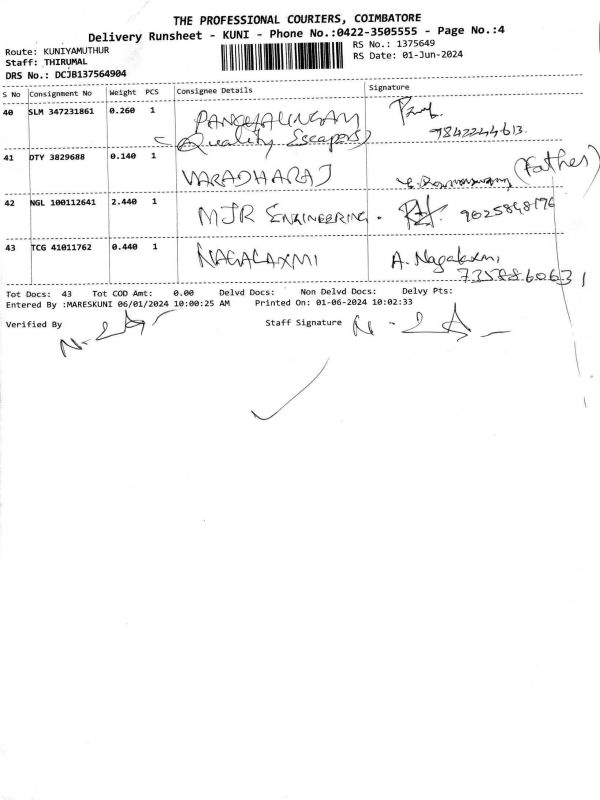 THE PROFESSIONAL COURIERS, COIMBATORE
Delivery Runsheet - KUNI - Phone No.:0422-3505555 - Page No.:4
Route: KUNIYAMUTHUR
RS No.: 1375649
Staff: THIRUMAL
RS Date: 01-Jun-2024
DRS No.: DCJB137564904
S No Consignment No Weight PCS Consignee Details Signature
40 SLM 347231861 0.260 1
(Quality Escapers)
9842244613.
41 DTY 3829688 0.140 1 VARADHARAJ (Father)
42 NGL 100112641 2.440 1 MJR ENGINEERING. 9025848176
43 TCG 41011762 0.440 1 NAGALAXMI A. Nagalaxmi
7358860631
Tot Docs: 43 Tot COD Amt: 0.00 Delvd Docs: Non Delvd Docs: Delvy Pts:
Entered By :MARESKUNI 06/01/2024 10:00:25 AM Printed On: 01-06-2024 10:02:33
Verified By Staff Signature